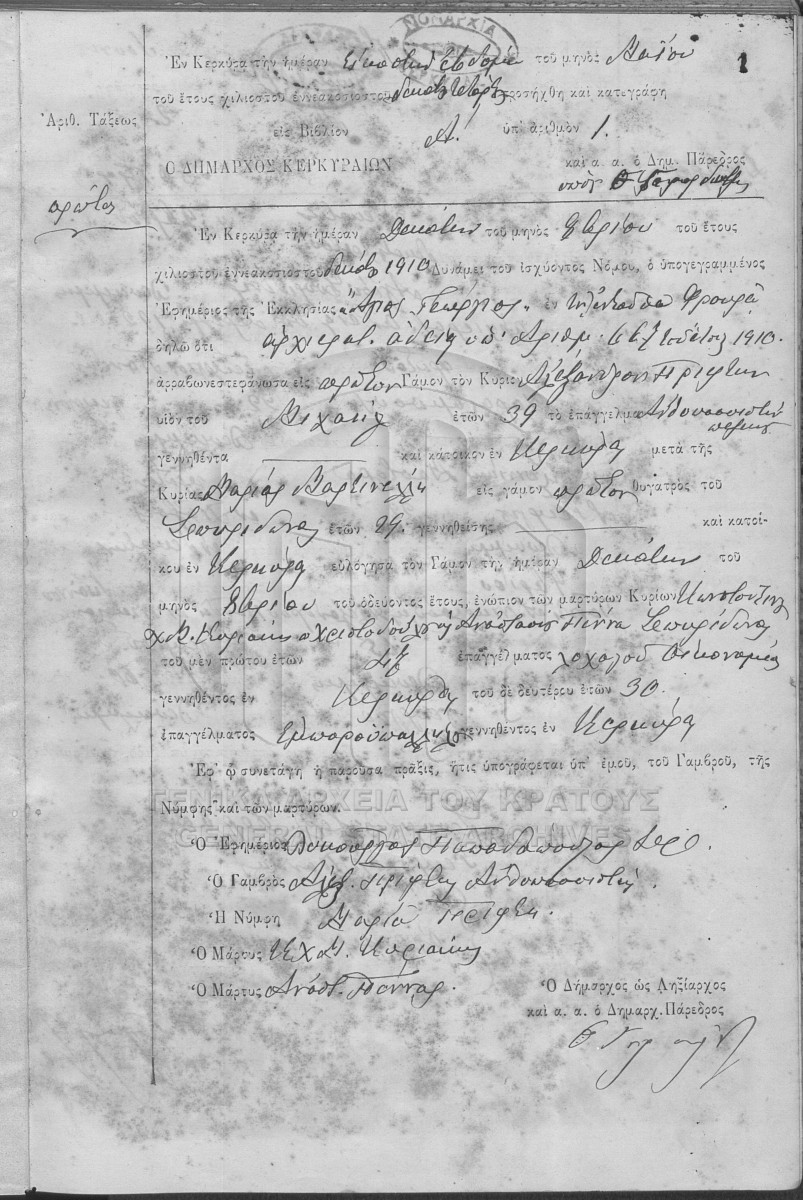 ΝΟΜΑΡΧΙΑ
1
Ἐν Κερκύρᾳ τὴν ἡμέραν εἰκοστὴν ἑβδόμην τοῦ μηνὸς Μαΐου
τοῦ ἔτους χιλιοστοῦ ἐννεακοσιοστοῦ προσήχθη καὶ κατεγράφη
Ἀριθ. Τάξεως
εἰς Βιβλίον Α. ὑπ' ἀριθμὸν 1.
Ο ΔΗΜΑΡΧΟΣ ΚΕΡΚΥΡΑΙΩΝ
καὶ α. α. ὁ Δημ. Πάρεδρος
πρῶτος
Ἐν Κερκύρᾳ τὴν ἡμέραν Δεκάτην τοῦ μηνὸς τοῦ ἔτους
χιλιοστοῦ ἐννεακοσιοστοῦ 1910 Δυνάμει τοῦ ἰσχύοντος Νόμου, ὁ ὑπογεγραμμένος
Ἐφημέριος τῆς Ἐκκλησίας "Ἅγιος Γεώργιος" ἐν Φρουρᾷ
δηλῶ ὅτι ἀρχιερατ. ἀδείᾳ ὑπ' Ἀριθμ. 1910.
ἀρραβωνεστεφάνωσα εἰς πρῶτον Γάμον τὸν Κύριον Ἀλέξανδρον Πρίφτην
υἱὸν τοῦ Μιχαὴλ ἐτῶν 39 τὸ ἐπάγγελμα Ἀνθυπασπιστὴν
γεννηθέντα καὶ κάτοικον ἐν Κερκύρᾳ μετὰ τῆς
Κυρίας Μαρίας Μαρτινέλλη εἰς γάμον πρῶτον θυγατρὸς τοῦ
Σπυρίδωνος ἐτῶν 29. γεννηθείσης καὶ κατοί-
κου ἐν Κερκύρᾳ εὐλόγησα τὸν Γάμον τὴν ἡμέραν Δεκάτην τοῦ
μηνὸς τοῦ ὁδεύοντος ἔτους, ἐνώπιον τῶν μαρτύρων Κυρίων
Κυριάκης Χριστοδούλου Ἀναστάσιος Πάννα Σπυρίδωνος
τοῦ μὲν πρώτου ἐτῶν 47 ἐπαγγέλματος λοχαγοῦ Οἰκονομίας
γεννηθέντος ἐν Κερκύρᾳ τοῦ δὲ δευτέρου ἐτῶν 30.
ἐπαγγέλματος Ἐμποροϋπαλλήλου γεννηθέντος ἐν Κερκύρᾳ
Ἐφ' ᾧ συνετάγη ἡ παροῦσα πρᾶξις, ἥτις ὑπογράφεται ὑπ' ἐμοῦ, τοῦ Γαμβροῦ, τῆς
Νύμφης καὶ τῶν μαρτύρων.
ΓΕΝΙΚΑ ΑΡΧΕΙΑ ΤΟΥ ΚΡΑΤΟΥΣ
GENERAL STATE ARCHIVES
Ὁ Ἐφημέριος Παπαδόπουλος
Ὁ Γαμβρὸς Ἀλέξ. Πρίφτης Ἀνθυπασπιστής.
Ἡ Νύμφη Μαρία Πρίφτη.
Ὁ Μάρτυς Κυριάκης
Ὁ Μάρτυς Ἀναστ. Πάννας.
Ὁ Δήμαρχος ὡς Ληξίαρχος
καὶ α. α. ὁ Δημαρχ. Πάρεδρος